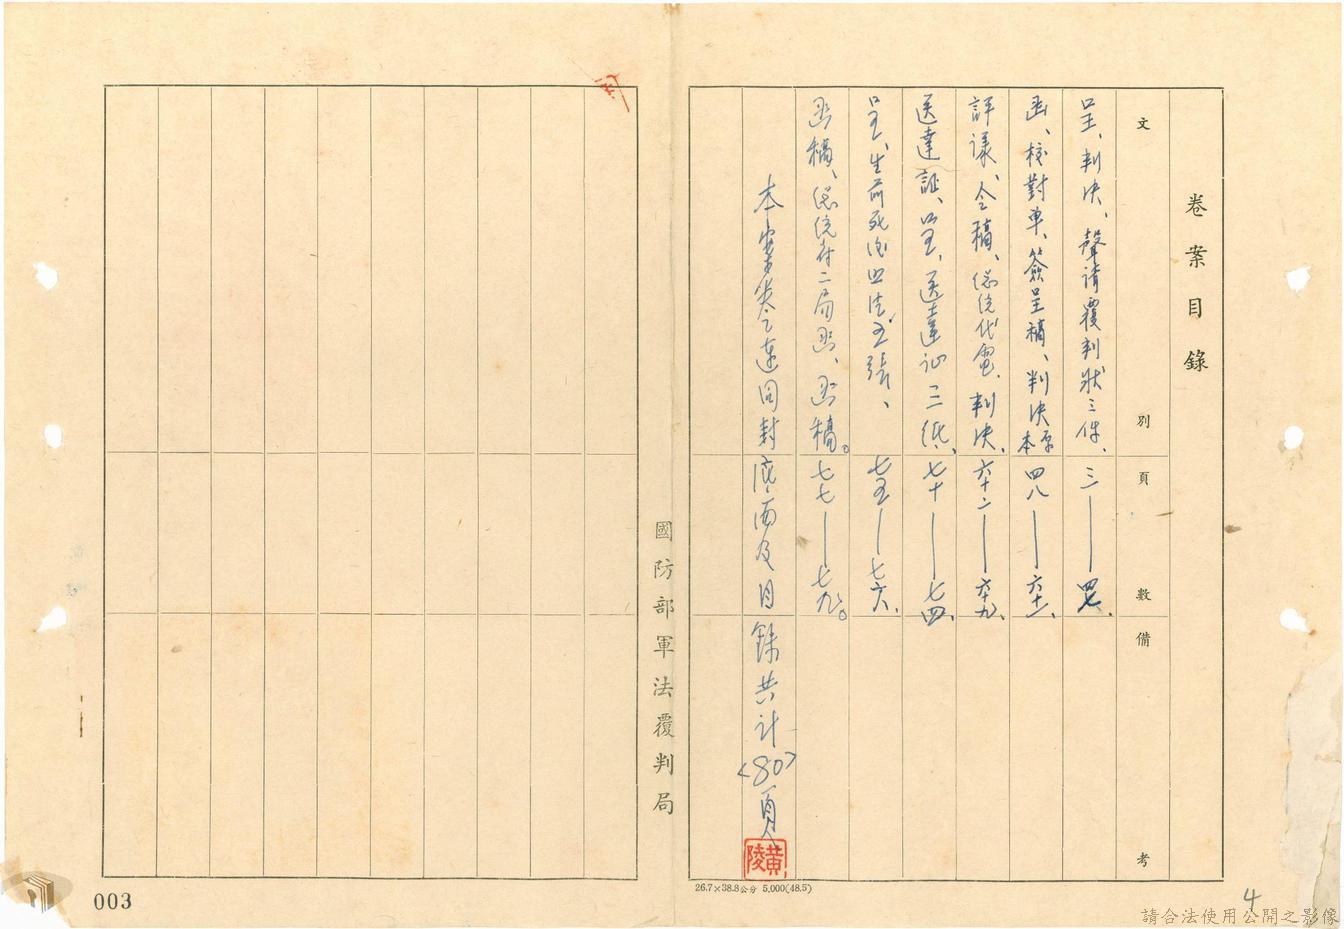 卷案目錄
文別 頁數 備考
呈、判決、聲請覆判狀三件、三——四七、
函、校對单、簽呈稿、判決原本 四八——六十一、
評議、令稿、總統代電、判決、六十二——六十九、
送達証、呈、送達证三紙、七十——七四、
呈、生前死後照片五張、七五——七六、
函稿、總統府二局函、函稿。七七——七九。
本案卷宗連同封底面及目錄共計<80>頁
黃陵
國防部軍法覆判局
26.7×38.8公分 5,000(48.5)
003
4
請合法使用公開之影像